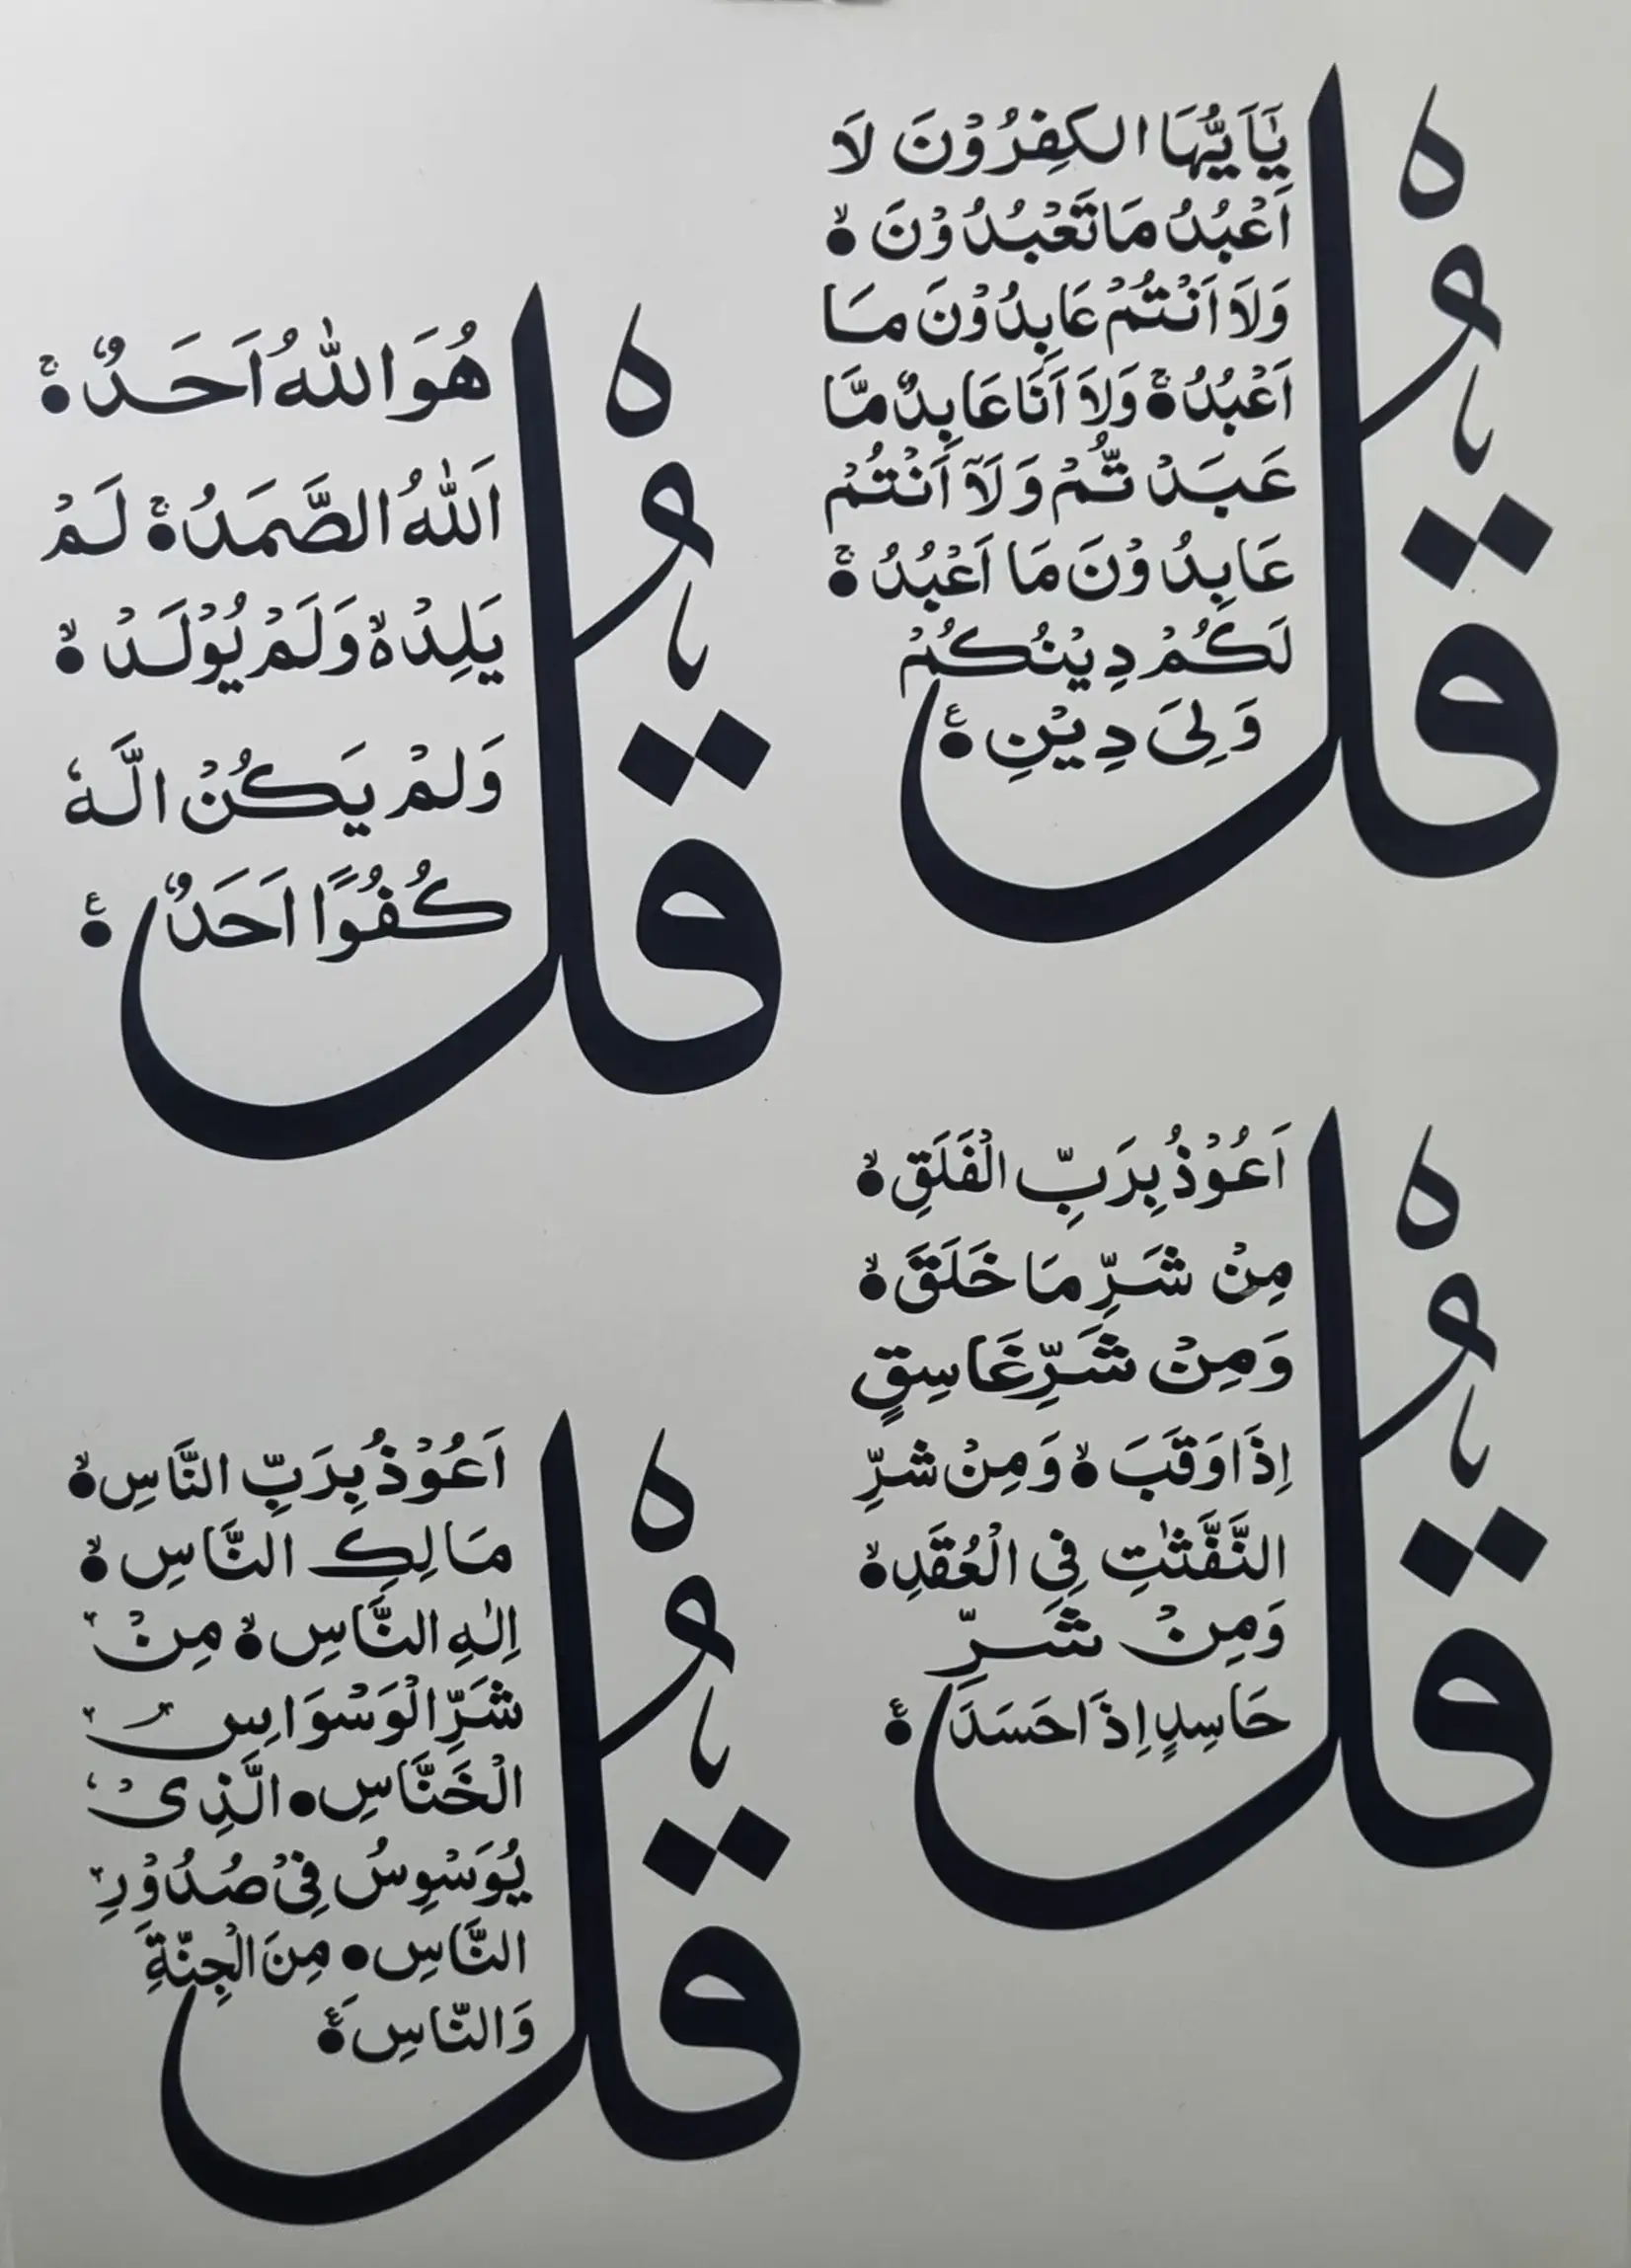 قُلْ
يٰٓاَيُّهَا الكٰفِرُوْنَ لَا
اَعْبُدُ مَا تَعْبُدُوْنَ ۙ
وَلَا اَنْتُمْ عَابِدُوْنَ مَا
اَعْبُدُ ۚ وَلَا اَنَا عَابِدٌ مَّا
عَبَدْ تُّمْ وَلَآ اَنْتُمْ
عَابِدُوْنَ مَا اَعْبُدُ ۚ
لَكُمْ دِيْنُكُمْ
وَلِىَ دِيْنِ ۧ
قُلْ
هُوَ اللّٰهُ اَحَدٌ ۚ
اَللّٰهُ الصَّمَدُ ۚ لَمْ
يَلِدْ ۙ وَلَمْ يُوْلَدْ ۙ
وَلَمْ يَكُنْ الَّهٗ
كُفُوًا اَحَدٌ ۧ
قُلْ
اَعُوْذُ بِرَبِّ الْفَلَقِ ۙ
مِنْ شَرِّ مَا خَلَقَ ۙ
وَمِنْ شَرِّ غَاسِقٍ
اِذَا وَقَبَ ۙ وَمِنْ شَرِّ
النَّفّٰثٰتِ فِى الْعُقَدِ ۙ
وَمِنْ شَرِّ
حَاسِدٍ اِذَا حَسَدَ ۧ
قُلْ
اَعُوْذُ بِرَبِّ النَّاسِ ۙ
مَالِكِ النَّاسِ ۙ
اِلٰهِ النَّاسِ ۙ مِنْ
شَرِّ الْوَسْوَاسِ
الْخَنَّاسِ ۰ الَّذِىْ
يُوَسْوِسُ فِىْ صُدُوْرِ
النَّاسِ ۰ مِنَ الْجِنَّةِ
وَالنَّاسِ ۧ